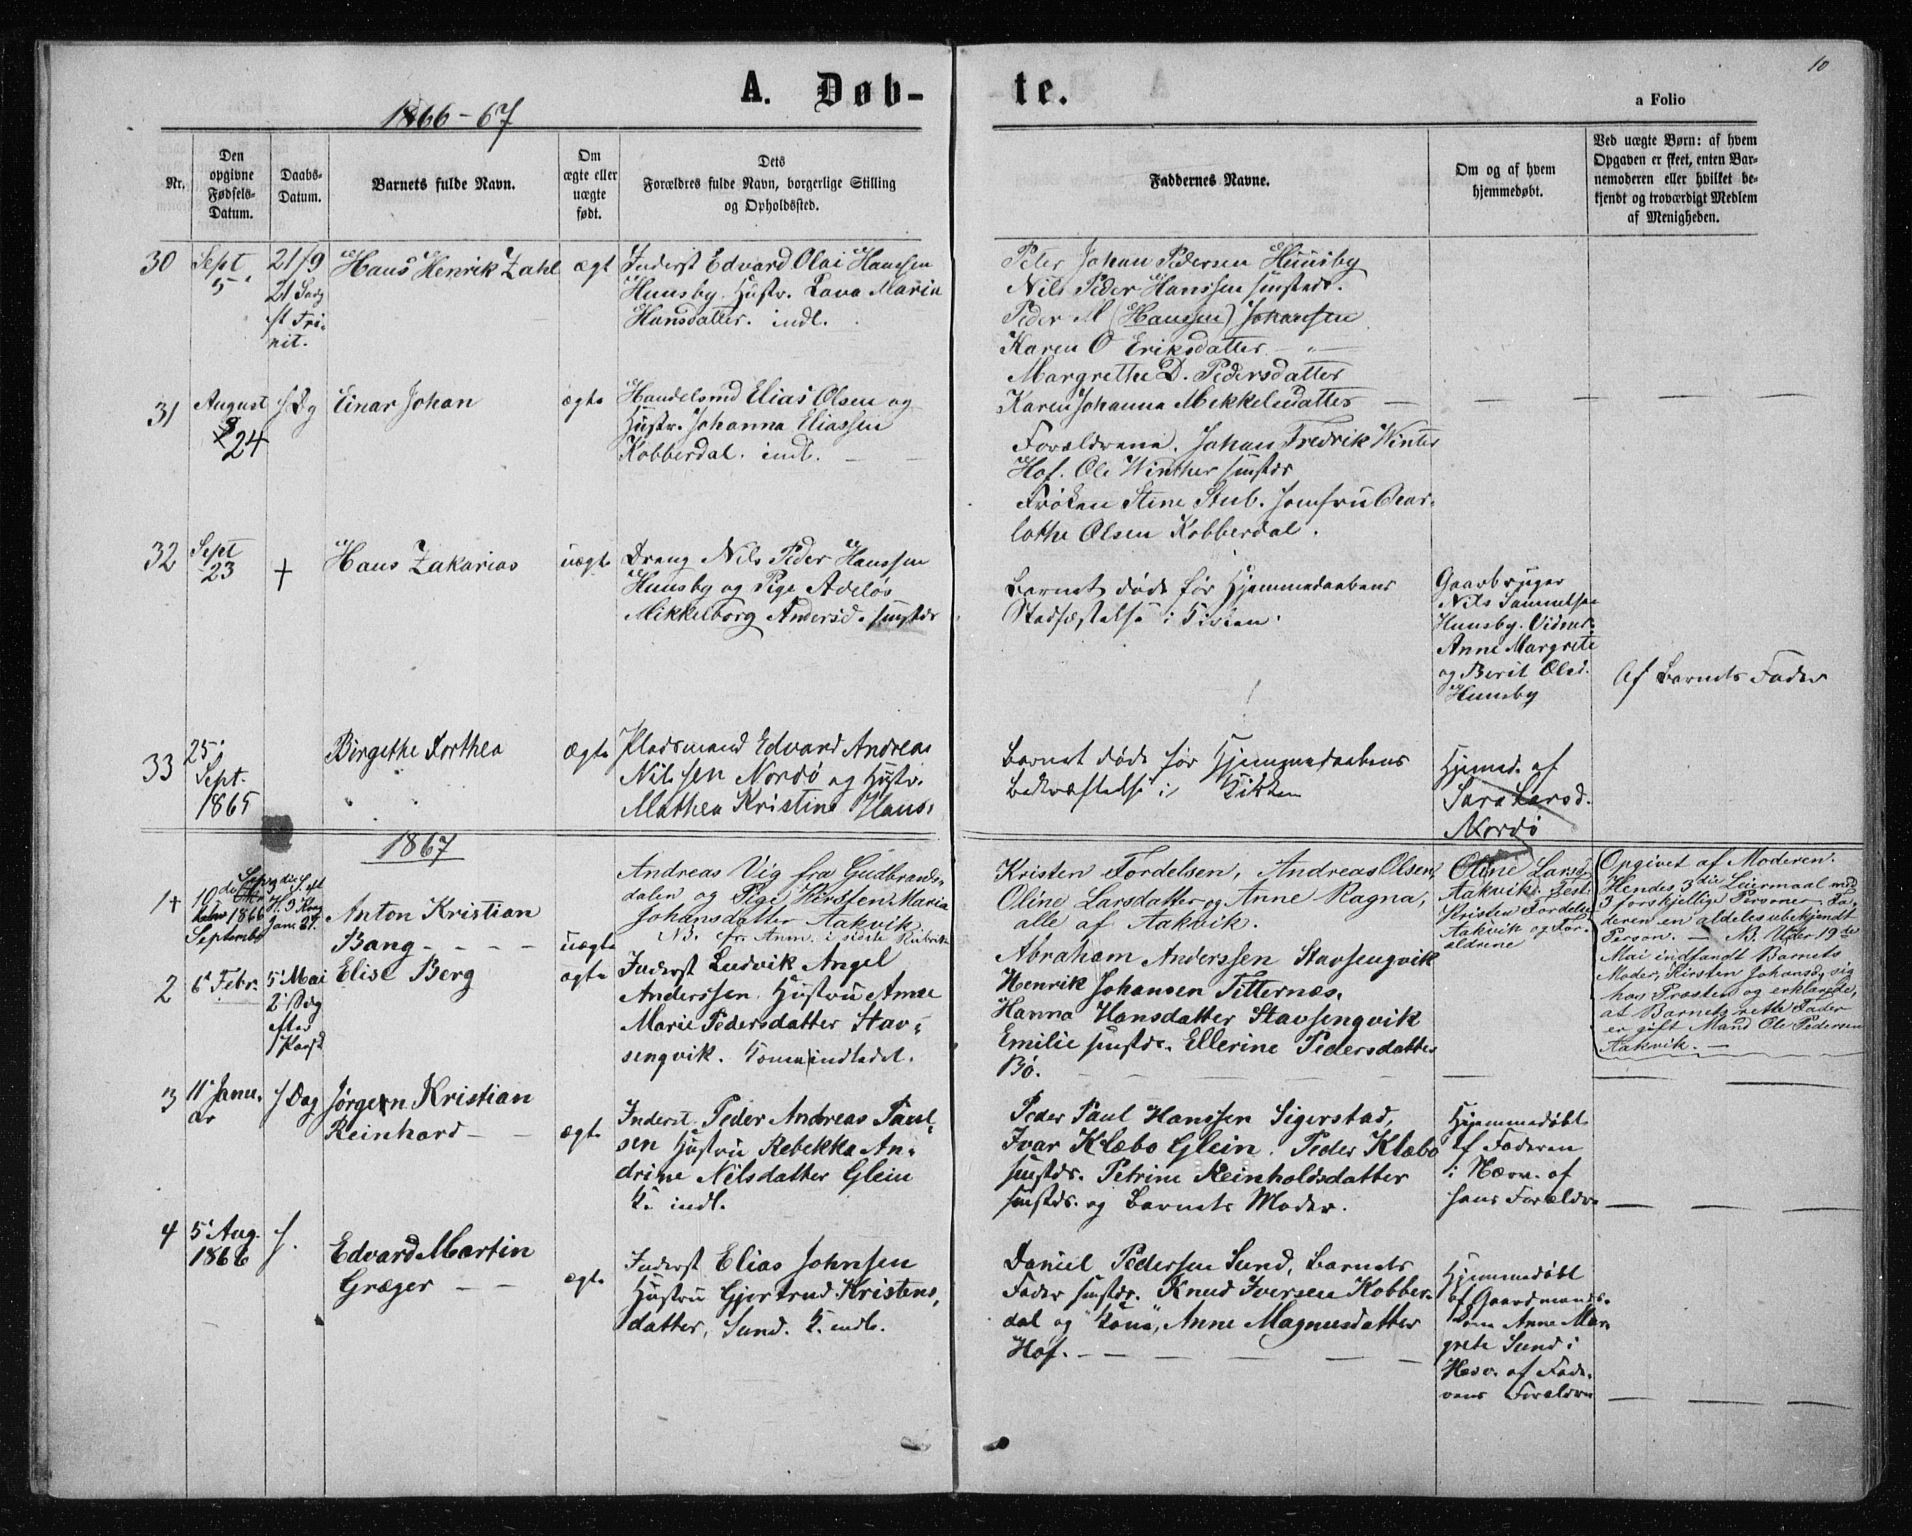 10
A. Døb-
te.
a Folio
1866-67
Nr.
Den
opgivne
Fødsels-
Datum.
Daabs-
Datum.
Barnets fulde Navn.
Om
ægte eller
uægte
født.
Dets
Forældres fulde Navn, borgerlige Stilling
og Opholdssted.
Faddernes Navne.
Om og af hvem
hjemmedøbt.
Ved uægte Børn: af hvem
Opgaven er skeet, enten Bar-
nemoderen eller hvilket be-
kjendt og troværdigt Medlem
af Menigheden.
30
Sept
5
21/9
21 Søndg
eft Tri-
nit.
Hans Henrik Zahl
ægt
Inderst Edvard Olai Hanssen
Huusby. Hustr. Lava Maria
Hansdatter. indl.
Peter Johan Pedersen Huusby
Nils Peder Hanssen smstds.
Peder M (Hanssen) Johansen
Karen O Eriksdatter - " -
Margrethe D. Pedersdatter
Karen Johanna Mikkelsdatter
31
August
24
Einar Johan
ægte
Handelsmd Elias Olsen og
Hustr. Johanna Eliassen
Kobberdal. indl.
Forældrene. Johan Fredrik Winter
Hof. Ole Winther smstds
Frøken Stine Stub. Jomfru Char-
lothe Olsen Kobberdal.
32
Sept
23
+
Hans Zakarias
uægte
Dreng Nils Peder Hanssen
Huusby og Pige Adeløs
Mikkelborg Andersd. smstds
Barnet døde før Hjemmedaabens
Stadfæstelse i Kirken.
Gaardbruger
Nils Samuelsen
Huusby. Vidner
Anne Margrete
og Berit Olsd.
Huusby
Af Barnets Fader
33
25'
Sept.
1865
Birgethe Dorthea
ægte
Pladsmand Edvard Andreas
Nilssen Nordø og Hustr.
Mathea Kristine Hans.
Barnet døde før Hjemmedaabens
Bekræftelse i Kirken
Hjemmed. af
Sara Larsd.
Nordø
1867
1+
10de
1866
September
Anton Kristian
Bang
uægte
Andreas Vig fra Gudbrands-
dalen og Pige Kirsten Maria
Johansdatter Aakvik
NB. fr. Anm. i sidste Rubrik
Kristen Fordelsen, Andreas Olsen,
Oline Larsdatter og Anne Ragna,
alle af Aakvik.
Oline Larsd
Aakvik. Test
Kristen Fordelsen
Aakvik og For-
ældrene
Opgivet af Moderen.
Hendes 3die Leiermaal med
3 forskjellige Personer. Fa-
deren en aldeles ubekjendt
Person. — NB. Under 19de
Mai indfandt Barnets
Moder, Kirsten Johansd, sig
hos Præsten og erklærede,
at Barnets rette Fader
er gift Mand Ole Pedersen
Aakvik. —
2
6' Febr.
5' Mai
2' Sdg
efter
Paaske
Elise Berg
ægte
Inderst Ludvik Angel
Anderssen. Hustru Anne
Marie Pedersdatter Stav-
sengvik. Konen indledet.
Abraham Anderssen Stavsengvik
Henrik Johansen Titternæs.
Hanna Hansdatter Stavsengvik
Emilie smstds. Ellerine Pedersdatter
Bø.
3
11' Janu-
ar
f Dag
Jørgen Kristian
Reinhard
ægte
Inderst Peder Andreas Paul-
sen Hustru Rebekka An-
drine Nilsdatter Glein
K. indl.
Peder Paul Hanssen Sigerstad,
Ivar Klæbo Glein. Peder Klæbo
smstds. Petrine Reinholdsdatter
smstds. og Barnets Moder.
Hjemmedøbt
af Faderen
i Nærv. af
hans Forældre
4
5' Aug.
1866
f.
Edvard Martin
Græger
ægte
Inderst Elias Johnsen
Hustru Gjertrud Kristens-
datter, Sund. K. indl.
Daniel Pedersen Sund, Barnets
Fader smstds. Knud Iversen Kobber-
dal og "Kone", Anne Magnusdatter
Hof.
Hjemmedøbt
af Gaardmands-
kone Anne Mar-
grete Sund i
Nærv. af Fade-
rens Forældre